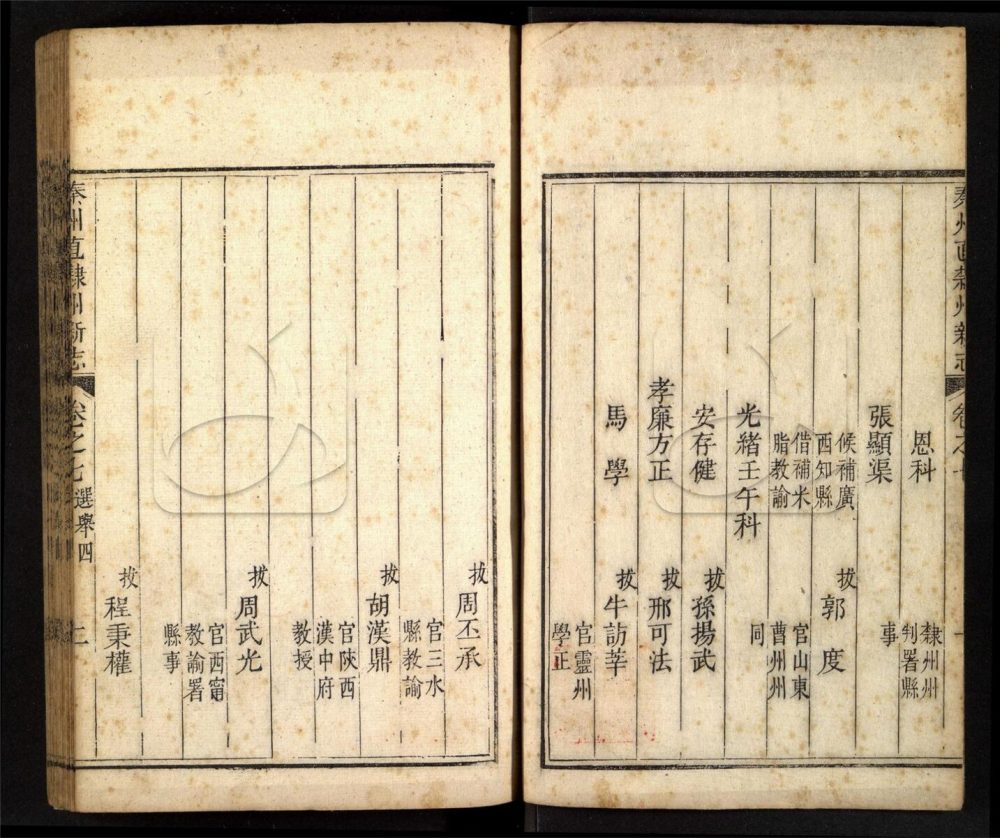 秦州直隸州新志
卷之七
恩科
隸州州
判署縣
事
張顯渠
候補廣
西知縣
借補米
脂教諭
拔郭度
官山東
曹州州
同
光緒壬午科
安存健
拔孫揚武
孝廉方正
拔邢可法
馬學
拔牛訪莘
官靈州
學正
拔周丕承
官三水
縣教諭
拔胡漢鼎
官陝西
漢中府
教授
拔周武光
官西甯
教諭署
縣事
拔程秉權
秦州直隸州新志
卷之七
選舉四